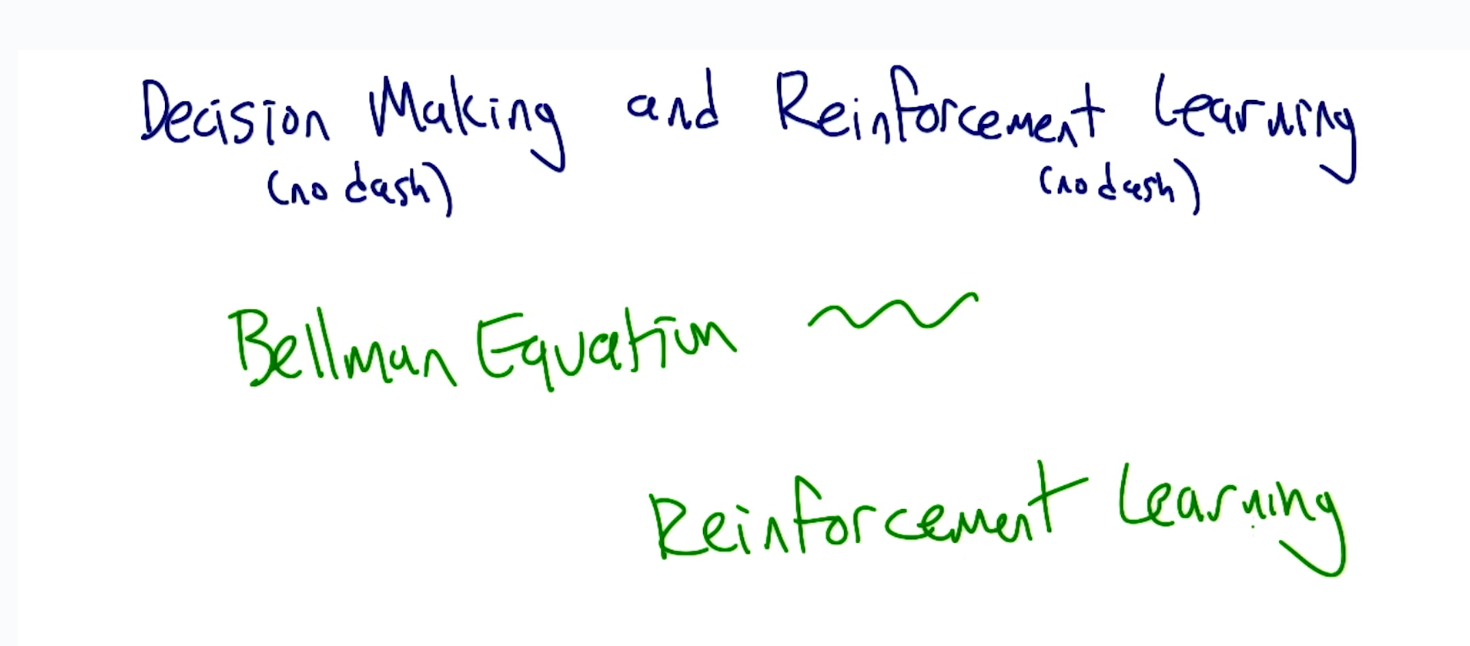 Decision Making and Reinforcement Learning
(no dash) (no dash)
Bellman Equation
Reinforcement Learning